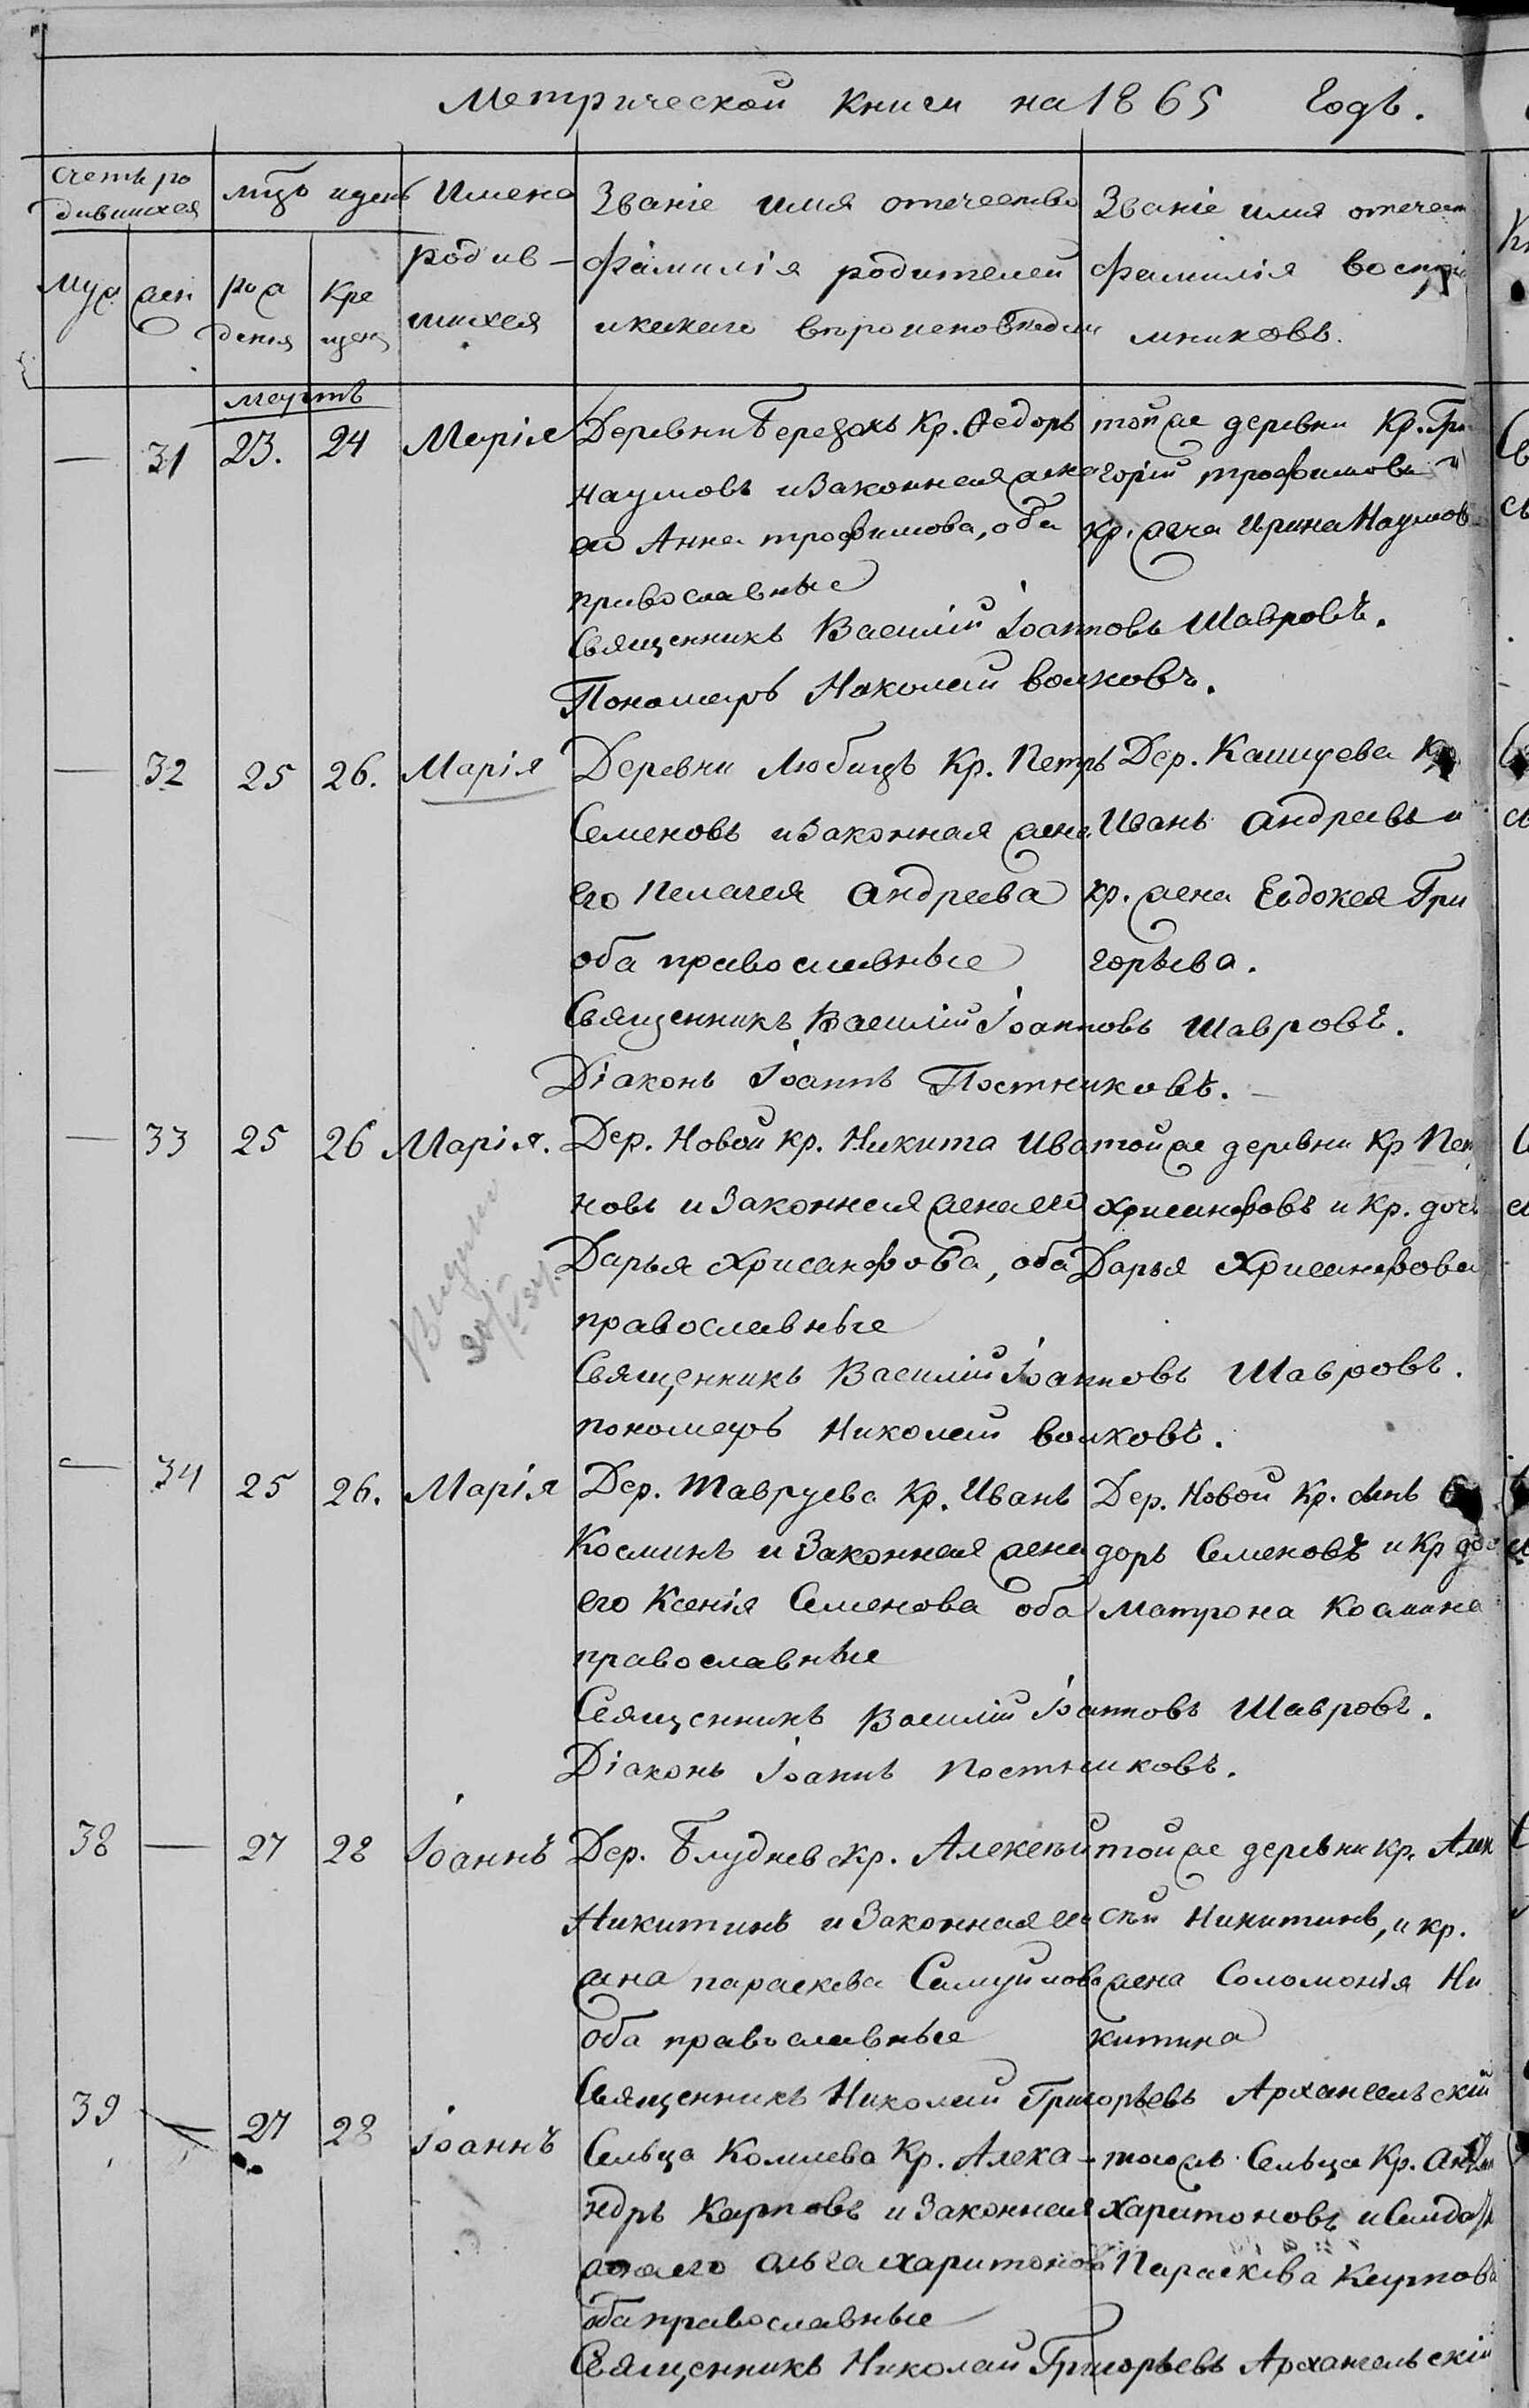 Метрической книги на 1865 Годъ.
Счетъ ро
дившихся
мцъ и день
Имена
родив-
шихся
Званіе имя отечество
фамилія родителей
и какаго вѣроисповѣдан
Званіе имя отечест
фамилія воспріе
мниковъ.
муж
жен
рож
денія
Кре
щен
мартъ
— 31 23. 24 Марія
Деревни Березокъ Кр. Ѳедоръ
Наумовъ и Законная жена
его Анна трофимова, оба
православные
той же деревни Кр. Гри
горій трофимовъ и
Кр. жена Ирина Наумова
Священникъ Василій Іоанновъ Шавровъ.
Пономарь Николай волковъ.
— 32 25 26. Марія
Деревни Любицъ Кр. Петръ
Семеновъ и Законная жена
его Пелагея Андреева
оба православные
Дер. Кашуева Кр
Иванъ Андреевъ и
Кр. жена Евдокея Гри
горьева.
Священникъ Василій Іоанновъ Шавровъ.
Діаконъ Іоаннъ Постниковъ.
— 33 25 26 Марія.
Дер. Новой Кр. Никита Ива
новъ и Законная жена его
Дарья Хрисанфова, оба
православные
той же деревни Кр Пет
Хрисанфовъ и Кр. дочь
Дарья Хрисанфова
Священникъ Василій Іоанновъ Шавровъ.
пономарь Николай волковъ.
— 34 25 26. Марія
Дер. Тавруева Кр. Иванъ
Косминъ и Законная жена
его Ксенія Семенова оба
православные
Дер. Новой Кр. сынъ
доръ Семеновъ и Кр до
Матрона Космина
Священникъ Василій Іоанновъ Шавровъ.
Діаконъ Іоаннъ Постниковъ.
38 — 27 28 Іоаннъ
Дер. Блуднев Кр. Алексѣй
Никитинъ и Законная его
жена параскева Самуилова
оба православные
той же деревни Кр. Алек
сѣй Никитинъ, и кр.
жена Соломонія Ни
китина
Священникъ Николай Григорьевъ Архангельскій
39 — 27 28 Іоаннъ
Сельца Комлева Кр. Алекса-
ндръ Карповъ и Законная
жена его Ольга Харитонова
оба православные
того жъ Сельца Кр.
Харитоновъ и Солдат
Параскева Карпова
Священникъ Николай Григорьевъ Архангельскій